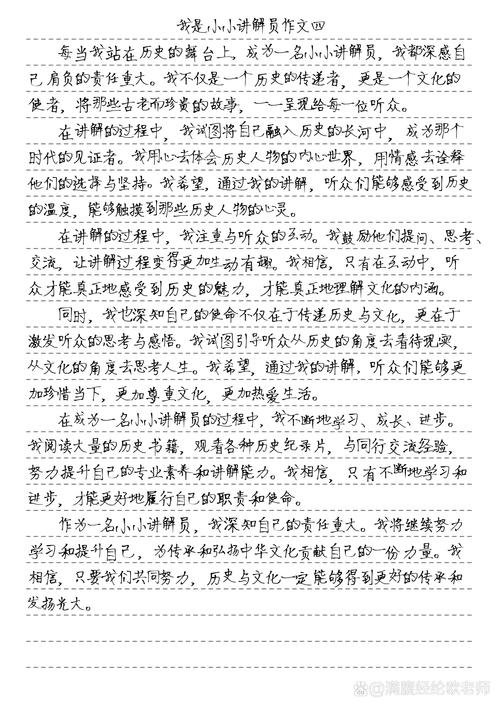 我是小小讲解员作文四
每当我站在历史的舞台上，成为一名小小讲解员，我都深感自
己肩负的责任重大。我不仅是一个历史的传递者，更是一个文化的
使者，将那些古老而珍贵的故事，一一呈现给每一位听众。
在讲解的过程中，我试图将自己融入历史的长河中，成为那个
时代的见证者。我用心去体会历史人物的内心世界，用情感去诠释
他们的选择与坚持。我希望，通过我的讲解，听众们能够感受到历史
的温度，能够触摸到那些历史人物的心灵。
在讲解的过程中，我注重与听众的互动。我鼓励他们提问、思考、
交流，让讲解过程变得更加生动有趣。我相信，只有在互动中，听
众才能真正地感受到历史的魅力，才能真正地理解文化的内涵。
同时，我也深知自己的使命不仅在于传递历史与文化，更在于
激发听众的思考与感悟。我试图引导听众从历史的角度去看待现实，
从文化的角度去思考人生。我希望，通过我的讲解，听众们能够更
加珍惜当下，更加尊重文化，更加热爱生活。
在成为一名小小讲解员的过程中，我不断地学习、成长、进步。
我阅读大量的历史书籍，观看各种历史纪录片，与同行交流经验，
努力提升自己的专业素养和讲解能力。我相信，只有不断地学习和
进步，才能更好地履行自己的职责和使命。
作为一名小小讲解员，我深知自己的责任重大。我将继续努力
学习和提升自己，为传承和弘扬中华文化贡献自己的一份力量。我
相信，只要我们共同努力，历史与文化一定能够得到更好的传承和
发扬光大。
@满腹经纶欧老师